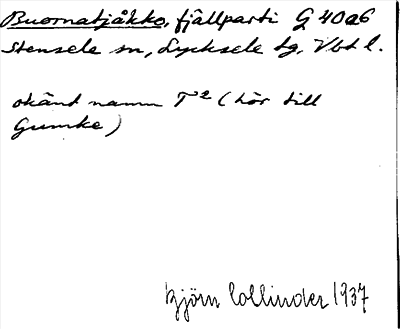 Buornatjåkko, fjällparti G 40 a6
Stensele sn, Lycksele tg, Vbt l.
okänt namn T² (hör till
Gumke)
Björn Collinder 1937